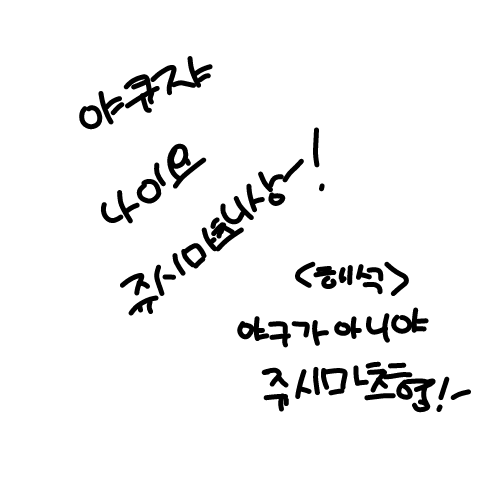 야큐쟈
나이요
쥬시마츠니상~!
<해석>
야구가 아니야
쥬시마츠형!~